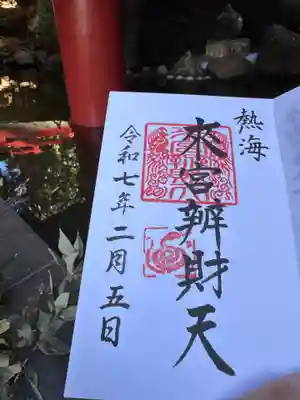 熱海
來宮辨財天
令和七年二月五日